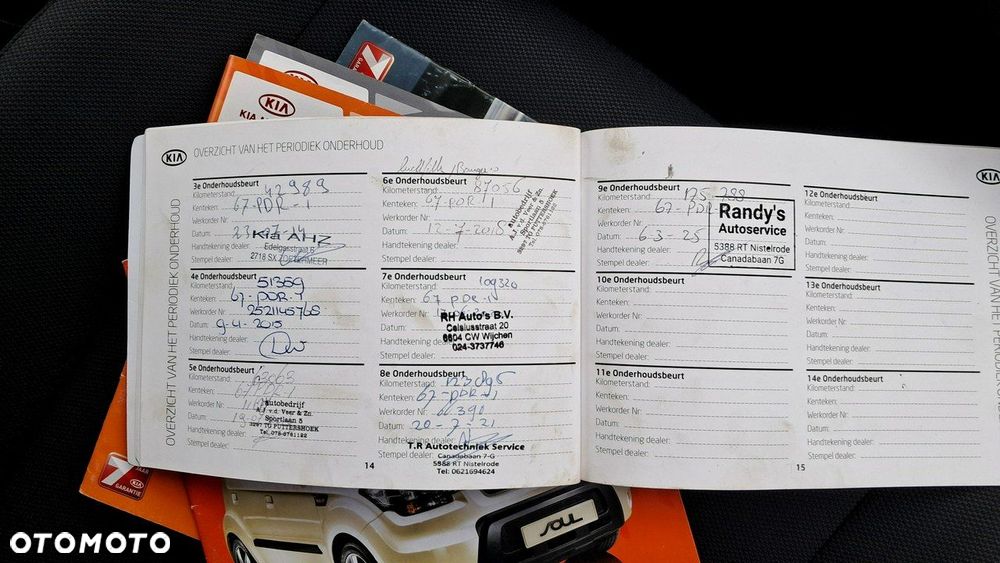 KIA
KIA
GARANTIE
OVERZICHT VAN HET PERIODIEK ONDERHOUD
OVERZICHT VAN HET PERIODIEK ONDERHOUD
3e Onderhoudsbeurt
Kilometerstand: 42989
Kenteken: 67-PDR-1
Werkorder Nr:
Datum:
Handtekening dealer:
Stempel dealer:
KIA AHZ
Edelgasstraat
2718 SX ZOETERMEER
4e Onderhoudsbeurt
Kilometerstand: 51369
Kenteken: 67-PDR-1
Werkorder Nr: 2521145768
Datum: 9-4-2015
Handtekening dealer:
Stempel dealer:
5e Onderhoudsbeurt
Kilometerstand:
Kenteken:
Werkorder Nr:
Datum:
Handtekening dealer:
Stempel dealer:
autobedrijf
A.J v.d. Veer & Zn.
Sportlaan 5
3297 TG PUTTERSHOEK
Tel. 078-6761122
6e Onderhoudsbeurt
Kilometerstand: 87056
Kenteken: 67-PDR-1
Werkorder Nr:
Datum:
Handtekening dealer:
Stempel dealer:
autobedrijf
A.J v.d. Veer & Zn.
Sportlaan 5
3297 TG PUTTERSHOEK
7e Onderhoudsbeurt
Kilometerstand: 109320
Kenteken: 67 PDR
Werkorder Nr:
Datum:
Handtekening dealer:
Stempel dealer:
RH Auto's B.V.
Celsiusstraat 20
6604 CW Wijchen
024-3737746
8e Onderhoudsbeurt
Kilometerstand:
Kenteken: 67-PDR-1
Werkorder Nr:
Datum: 20-7-21
Handtekening dealer:
Stempel dealer:
T.R Autotechniek Service
Canadabaan 7-G
5388 RT Nistelrode
Tel: 0621694624
14
9e Onderhoudsbeurt
Kilometerstand: 175-788
Kenteken: 67-PDR
Werkorder Nr:
Datum: 6-3-25
Handtekening dealer:
Stempel dealer:
Randy's
Autoservice
5388 RT Nistelrode
Canadabaan 7G
10e Onderhoudsbeurt
Kilometerstand:
Kenteken:
Werkorder Nr:
Datum:
Handtekening dealer:
Stempel dealer:
11e Onderhoudsbeurt
Kilometerstand:
Kenteken:
Werkorder Nr:
Datum:
Handtekening dealer:
Stempel dealer:
12e Onderhoudsbeurt
Kilometerstand:
Kenteken:
Werkorder Nr:
Datum:
Handtekening dealer:
Stempel dealer:
13e Onderhoudsbeurt
Kilometerstand:
Kenteken:
Werkorder Nr:
Datum:
Handtekening dealer:
Stempel dealer:
14e Onderhoudsbeurt
Kilometerstand:
Kenteken:
Werkorder Nr:
Datum:
Handtekening dealer:
Stempel dealer:
15
KIA
OVERZICHT VAN HET
JAAR
GARANTIE
SOUL
OTOMOTO